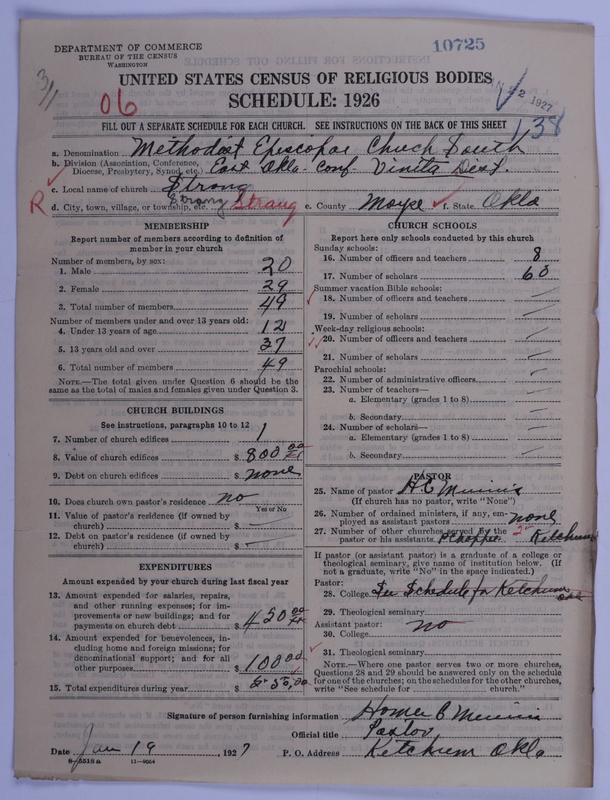 DEPARTMENT OF COMMERCE
BUREAU OF THE CENSUS
WASHINGTON
10725
UNITED STATES CENSUS OF RELIGIOUS BODIES
SCHEDULE: 1926
3/1
06
2 1927
138
FILL OUT A SEPARATE SCHEDULE FOR EACH CHURCH. SEE INSTRUCTIONS ON THE BACK OF THIS SHEET
a. Denomination Methodist Episcopal Church South
b. Division (Association, Conference, Diocese, Presbytery, Synod, etc.) East Okla. Conf. Vinita Dist.
c. Local name of church Strang
R d. City, town, village, or township, etc. Strang Strang e. County Mayes f. State Okla
MEMBERSHIP
Report number of members according to definition of
member in your church
Number of members, by sex:
1. Male 20
2. Female 29
3. Total number of members 49
Number of members under and over 13 years old:
4. Under 13 years of age 12
5. 13 years old and over 37
6. Total number of members 49
NOTE.—The total given under Question 6 should be the
same as the total of males and females given under Question 3.
CHURCH BUILDINGS
See instructions, paragraphs 10 to 12
7. Number of church edifices 1
8. Value of church edifices $ 800 00
9. Debt on church edifices $ none
10. Does church own pastor's residence no
Yes or No
11. Value of pastor's residence (if owned by
church) $ —
12. Debt on pastor's residence (if owned by
church) $ —
EXPENDITURES
Amount expended by your church during last fiscal year
13. Amount expended for salaries, repairs,
and other running expenses; for im-
provements or new buildings; and for
payments on church debt $ 450 00
14. Amount expended for benevolences, in-
cluding home and foreign missions; for
denominational support; and for all
other purposes $ 100 00
15. Total expenditures during year $ 550,00
CHURCH SCHOOLS
Report here only schools conducted by this church
Sunday schools:
16. Number of officers and teachers 8
17. Number of scholars 60
Summer vacation Bible schools:
18. Number of officers and teachers —
19. Number of scholars —
Week-day religious schools:
20. Number of officers and teachers —
21. Number of scholars —
Parochial schools:
22. Number of administrative officers —
23. Number of teachers—
a. Elementary (grades 1 to 8) —
b. Secondary —
24. Number of scholars—
a. Elementary (grades 1 to 8) —
b. Secondary —
PASTOR
25. Name of pastor H.C.
(If church has no pastor, write "None")
26. Number of ordained ministers, if any, em-
ployed as assistant pastors none
27. Number of other churches served by the
pastor or his assistants 2 Ketchum
If pastor (or assistant pastor) is a graduate of a college or
theological seminary, give name of institution below. (If
not a graduate, write "No" in the space indicated.)
Pastor:
28. College See Schedule for Ketchum Okla
29. Theological seminary
Assistant pastor: no
30. College
31. Theological seminary
NOTE.—Where one pastor serves two or more churches,
Questions 28 and 29 should be answered only on the schedule
for one of the churches; on the schedules for the other churches,
write "See schedule for church."
Signature of person furnishing information Homer C
Official title Pastor
Date Jan 19, 1927 P. O. Address Ketchum Okla
8-5518a 11-9054